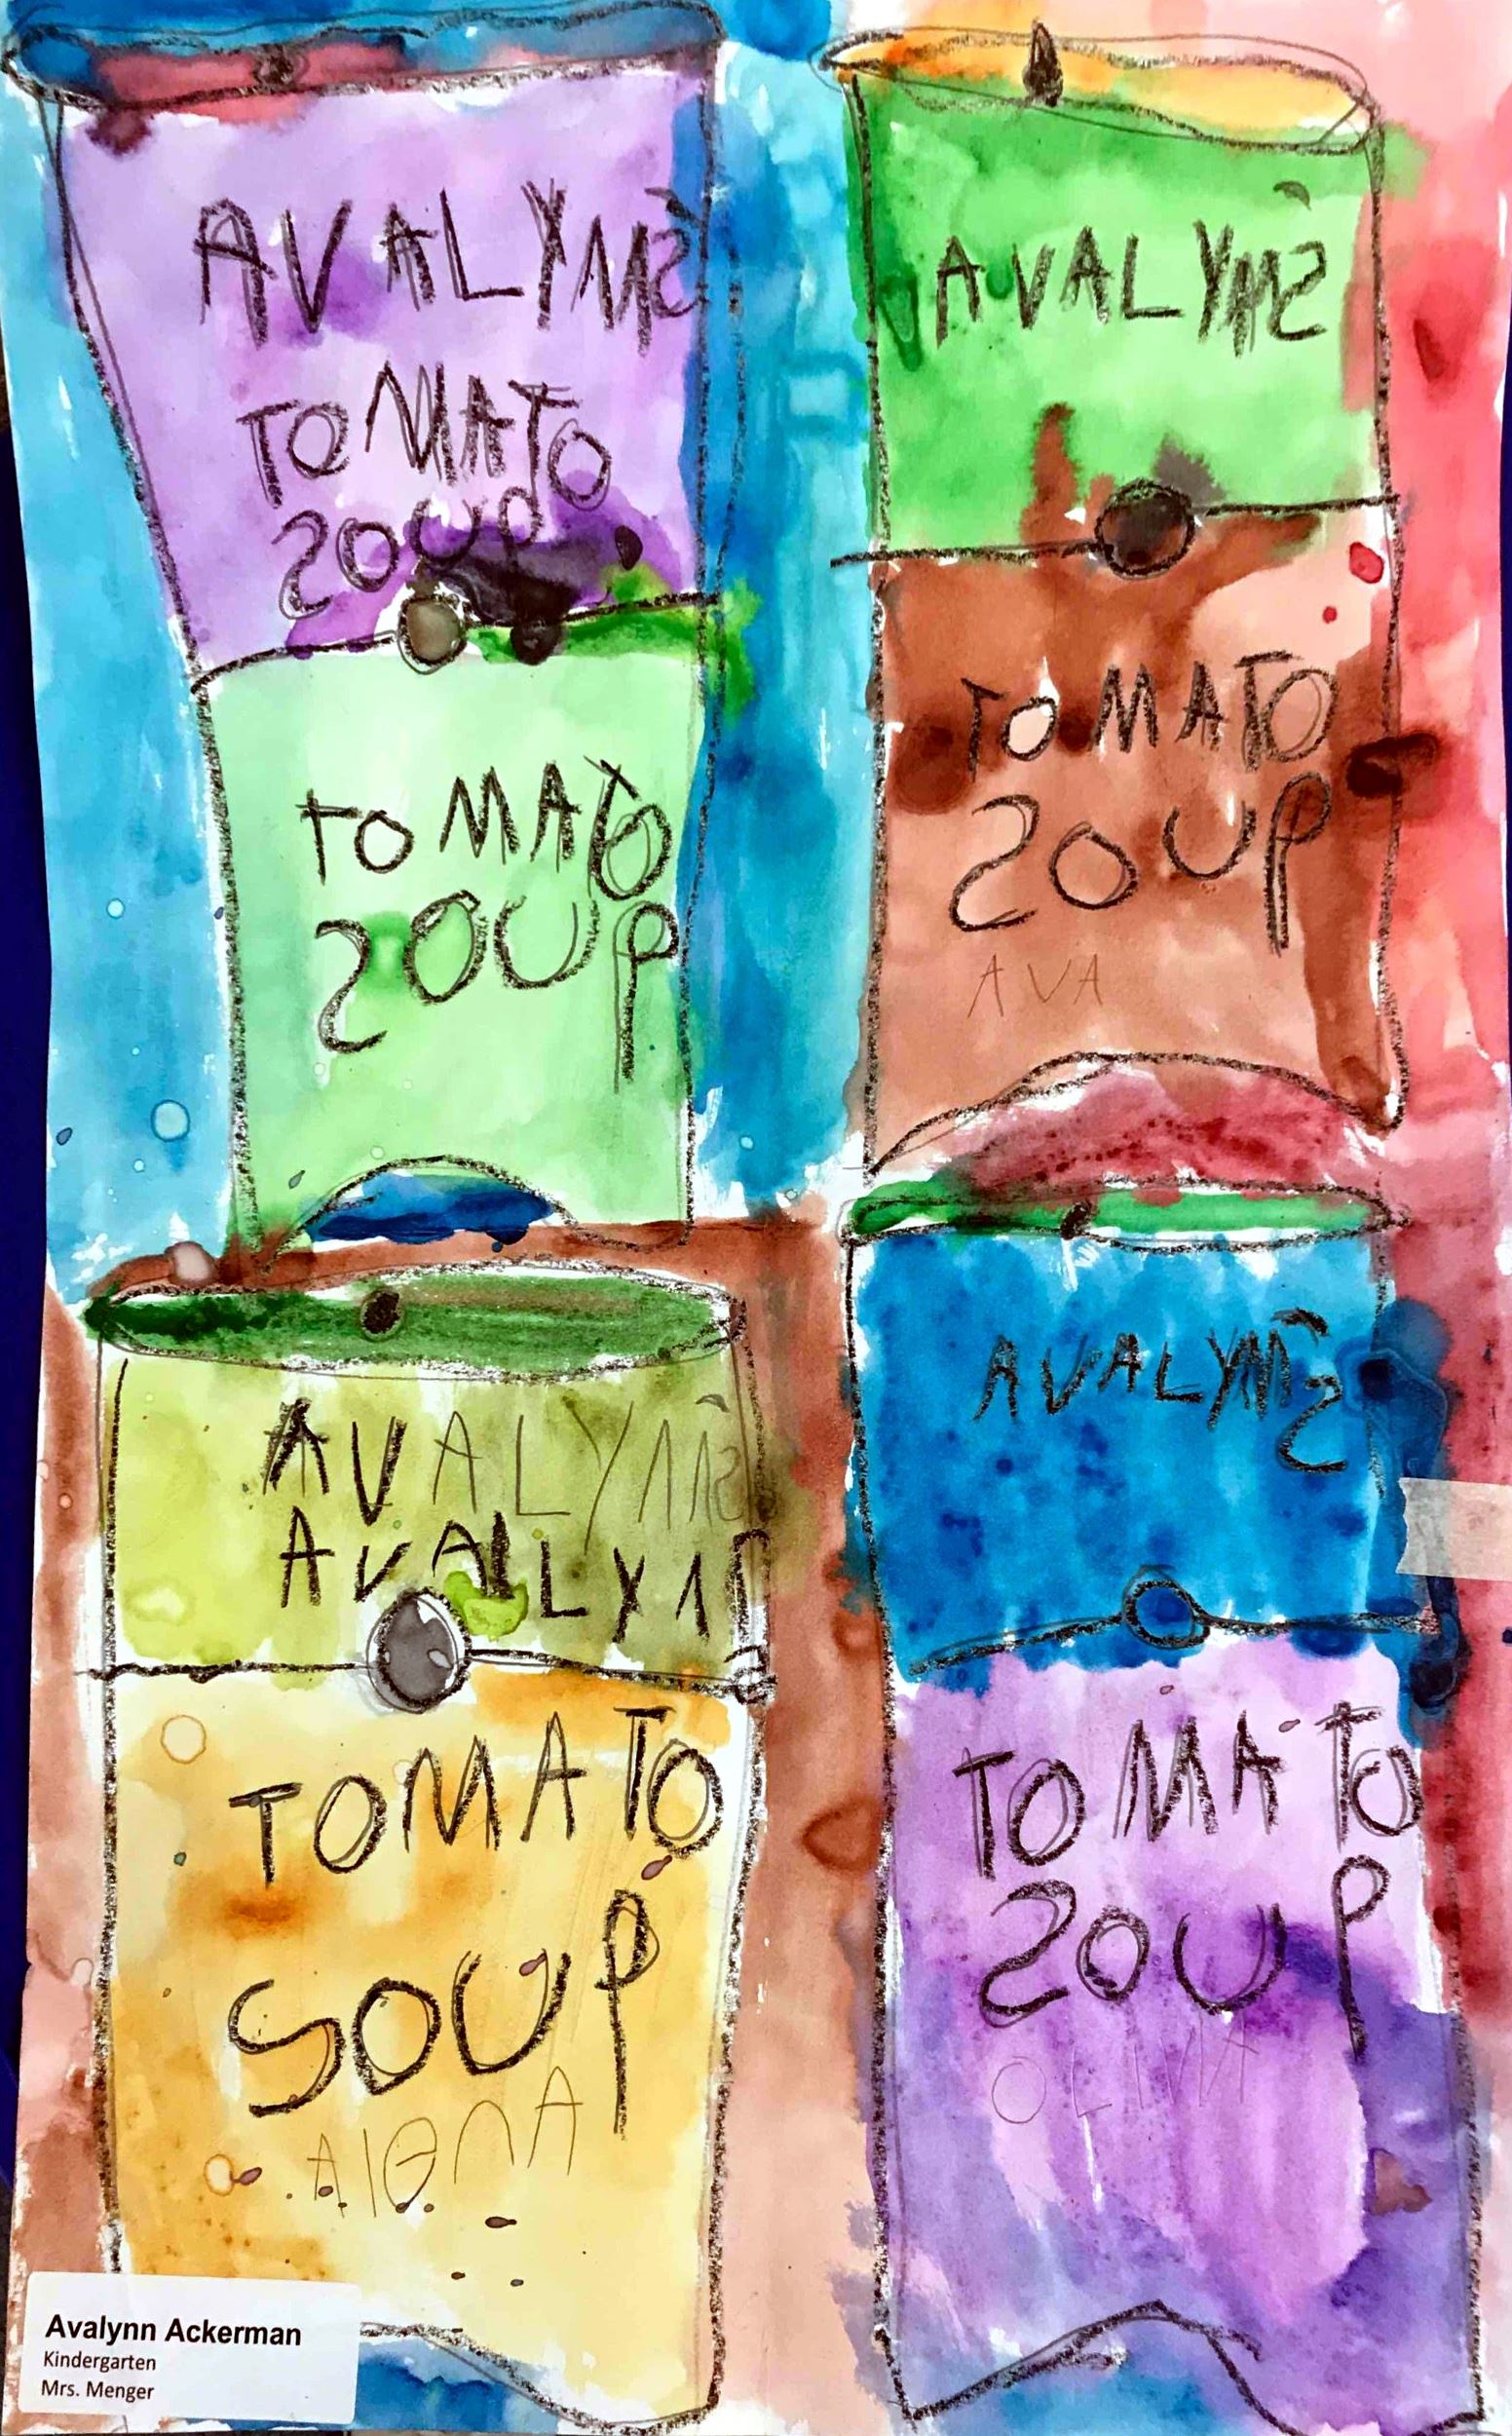 AVALYNN'S
TOMATO
SOUP
TOMATO
SOUP
AVALYNN'S
TOMATO
SOUP
AVA
AVALYNN'S
TOMATO
SOUP
AVALYNN'S
TOMATO
SOUP
OLIVIA
Avalynn Ackerman
Kindergarten
Mrs. Menger